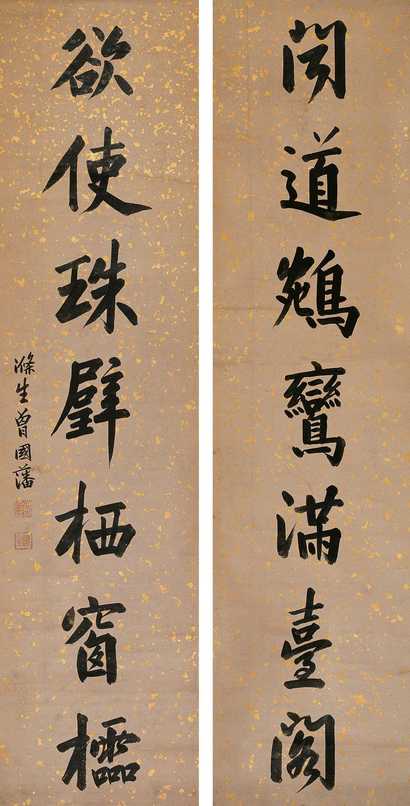 閱道鵷鸞滿臺閣
欲使珠璧栖窗櫺
滌生曾國藩